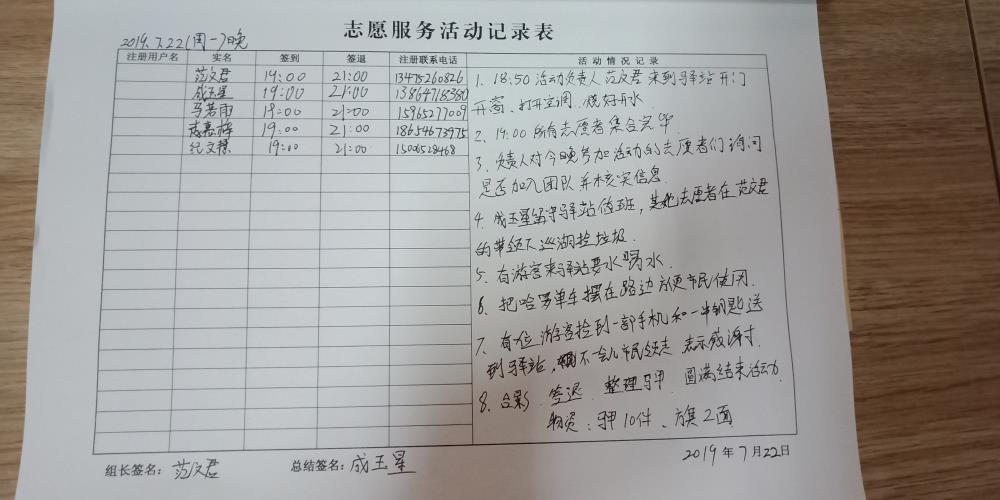 志愿服务活动记录表
2019.7.22(周一)晚
注册用户名 实名 签到 签退 注册联系电话 活动情况记录
范文君 19:00 21:00 13475260826
成玉星 19:00 21:00 13864718380
马若雨 19:00 21:00 15965277009
19:00 21:00 18654673975
纪文 19:00 21:00 15006528468
1. 18:50 活动负责人 范文君 来到驿站开门
开窗、打开空调 烧好开水
2、19:00 所有志愿者集合完毕
3、负责人对今晚参加活动的志愿者们询问
是否加入团队并核实信息
4、成玉星留守驿站值班,其他志愿者在范文君
的带领下巡湖捡垃圾.
5、有游客来驿站要水喝水.
6、把哈罗单车摆在路边方便市民使用.
7、有位游客捡到一部手机和一串钥匙送
到驿站,不一会儿市民领走 表示感谢.
8、合影 签退 整理马甲 圆满结束活动.
物资:马甲10件、旗2面
组长签名:范文君 总结签名:成玉星 2019年7月22日